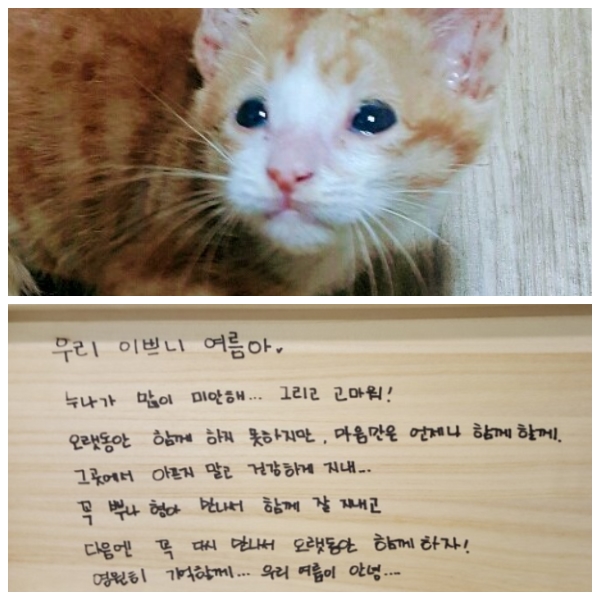 우리 이쁘니 여름아
누나가 많이 미안해... 그리고 고마워!
오랫동안 함께 하지 못하지만, 마음만은 언제나 함께할께.
그곳에서 아프지 말고 건강하게 지내...
꼭 뿌나 형아 만나서 함께 잘 지내고
다음엔 꼭 다시 만나서 오랫동안 함께하자!
영원히 기억할께... 우리 여름이 안녕....